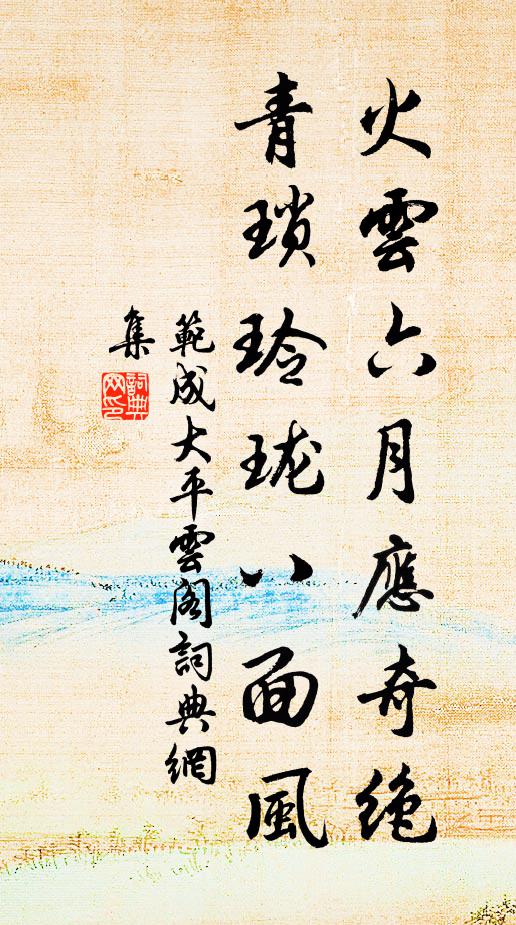 火雲六月應奇絶
青瑣玲瓏八面風
範成大平雲閣詞典網
集
詞典網印